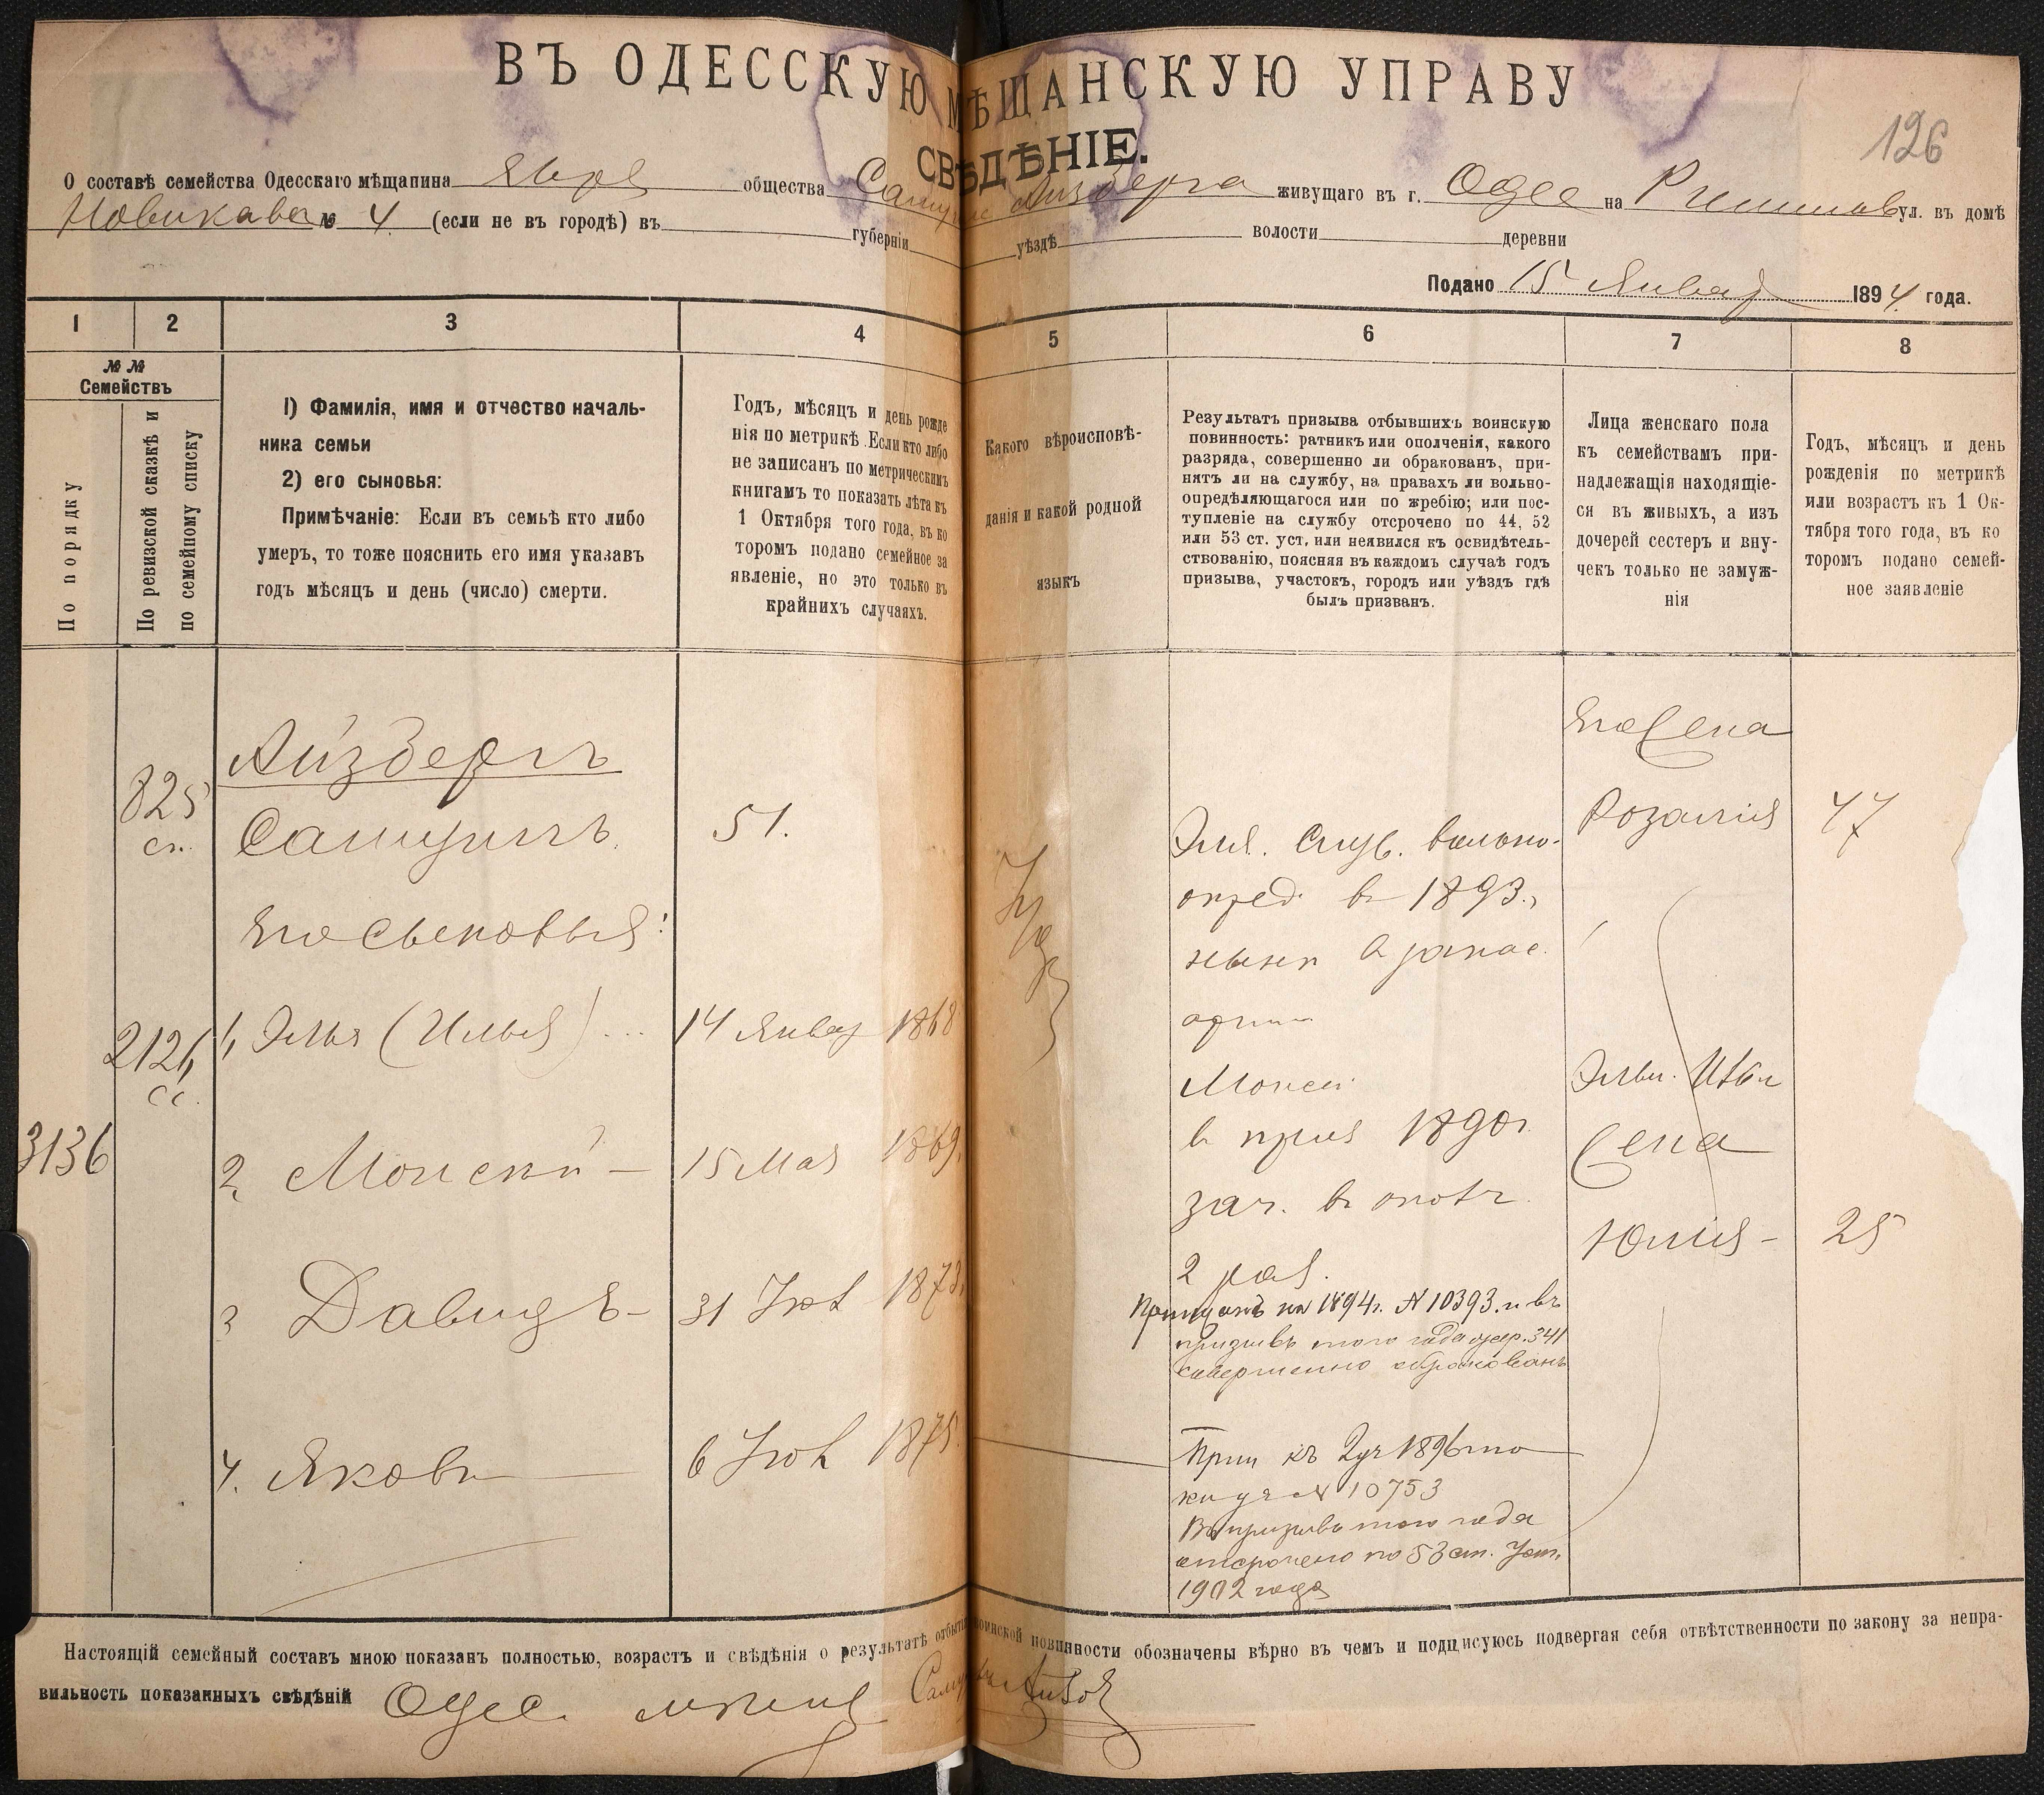 ВЪ ОДЕССКУЮ МѢЩАНСКУЮ УПРАВУ
126
СВѢДѢНІЕ.
О составѣ семейства Одесскаго мѣщанина Евре общества Самуила Айзберга живущаго въ г. Одес на Ришельев ул. въ домѣ
Новикава № 4 (если не въ городѣ) въ губерніи уѣздѣ волости деревни
Подано 15 Январ 1894 года.
1 2 3 4 5 6 7 8
№ №
Семействъ
По порядку
По ревизской сказкѣ и
по семейному списку
1) Фамилія, имя и отчество началь-
ника семьи
2) его сыновья:
Примѣчаніе: Если въ семьѣ кто либо
умеръ, то тоже пояснить его имя указавъ
годъ мѣсяцъ и день (число) смерти.
Годъ, мѣсяцъ и день рожде
нія по метрикѣ. Если кто либо
не записанъ по метрическимъ
книгамъ то показать лѣта къ
1 Октября того года, въ ко
торомъ подано семейное за
явленіе, но это только въ
крайнихъ случаяхъ.
Какого вѣроисповѣ-
данія и какой родной
языкъ
Результатъ призыва отбывшихъ воинскую
повинность: ратникъ или ополченія, какого
разряда, совершенно ли обракованъ, при-
нятъ ли на службу, на правахъ ли вольно-
опредѣляющагося или по жребію; или пос-
тупленіе на службу отсрочено по 44, 52
или 53 ст. уст, или неявился къ освидѣтель-
ствованію, поясняя въ каждомъ случаѣ годъ
призыва, участокъ, городъ или уѣздъ гдѣ
былъ призванъ.
Лица женскаго пола
къ семействамъ при-
надлежащія находящіе-
ся въ живыхъ, а изъ
дочерей сестеръ и вну-
чекъ только не замуж-
нія
Годъ, мѣсяцъ и день
рожденія по метрикѣ
или возрастъ къ 1 Ок-
тября того года, въ ко
торомъ подано семей-
ное заявленіе
3136
825
сп.
2126
сс.
Айзбергъ
Самуилъ 51.
Его Сыновья:
1, Элья (Илья) ... 14 Январ 1868
2, Моисей - 15 Мая 1869.
3 Давидъ - 31 1873.
4. Яковъ 6 1875.
Іуд
Эля. Служ. вольно-
опред. в 1893.,
нынѣ в запас.
арми
Моисей
в приз 1890г.
зач. в ополч.
2 раз.
Приписанъ на 1894г. № 10393. и въ
призывъ того года жер. 341
совершенно обракованъ
Прип къ 2 уч 1896 по
кн уч № 10753
Въ призывъ того года
отсрочено по 53 ст. Уст.
1902 года
Его Жена
Розалія 47
Жена
Юлія - 25
Настоящій семейный составъ мною показанъ полностью, возрастъ и свѣдѣнія о результатѣ отбытія воинской повинности обозначены вѣрно въ чемъ и подписуюсь подвергая себя отвѣтственности по закону за непра-
вильность показанныхъ свѣдѣній Одес. мѣщ Самуилъ